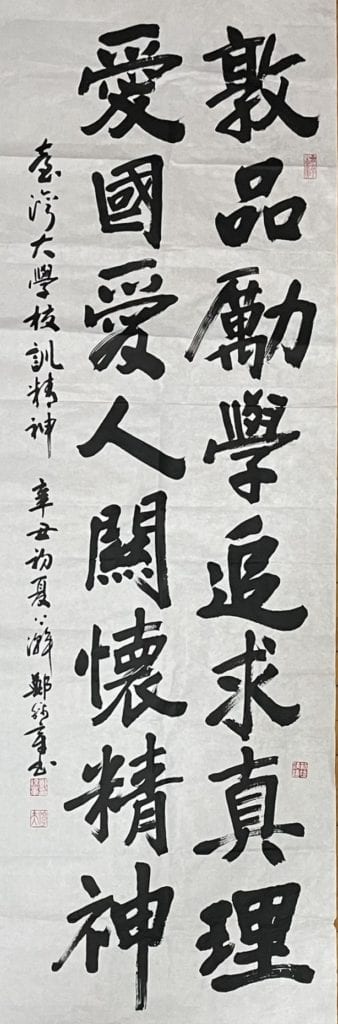 敦品勵學追求真理
愛國愛人關懷精神
臺灣大學校訓精神 辛丑初夏 鄭 書